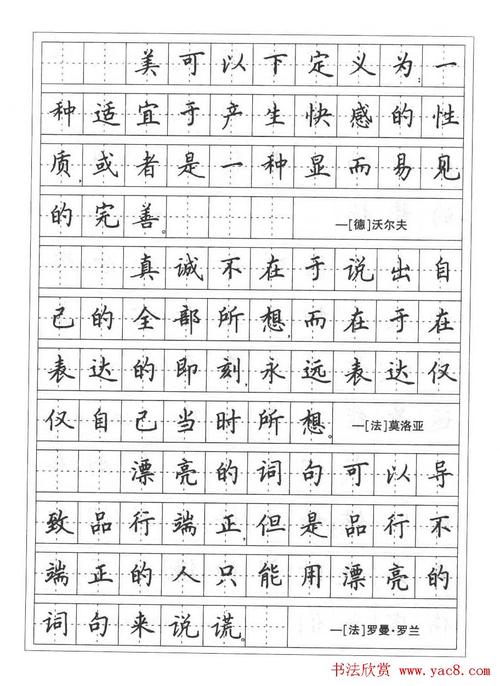 美可以下定义为，一
种适宜于产生快感的性
质，或者是一种显而易见
的完善。 —[德]沃尔夫
真诚不在于说出自
己的全部所想，而在于在
表达的即刻，永远表达仅
仅自己当时所想。 —[法]莫洛亚
漂亮的词句可以导
致品行端正，但是品行不
端正的人只能用漂亮的
词句来说谎。 —[法]罗曼·罗兰
书法欣赏
www.yac8.com